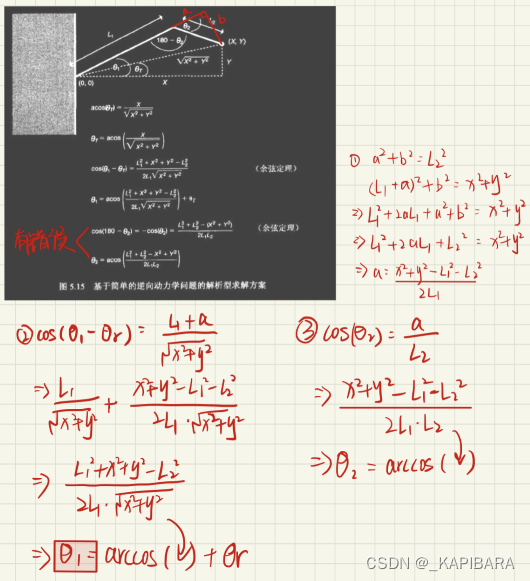 L₁
a
b
θ₂
180 − θ₂
(X, Y)
θ₁
θ_T
√X² + Y²
Y
(0, 0)
X
acos(θ_T) = X / √X² + Y²
θ_T = acos( X / √X² + Y² )
cos(θ₁ − θ_T) = L₁² + X² + Y² − L₂² / 2L₁√X² + Y² (余弦定理)
θ₁ = acos( L₁² + X² + Y² − L₂² / 2L₁√X² + Y² ) + θ_T
cos(180 − θ₂) = −cos(θ₂) = L₁² + L₂² − (X² + Y²) / 2L₁L₂ (余弦定理)
θ₂ = acos( L₁² + L₂² − X² + Y² / 2L₁L₂ )
图 5.15 基于简单的逆向动力学问题的解析型求解方案
① a² + b² = L₂²
(L₁ + a)² + b² = x² + y²
⇒ L₁² + 2aL₁ + a² + b² = x² + y²
⇒ L₁² + 2aL₁ + L₂² = x² + y²
⇒ a = x² + y² − L₁² − L₂² / 2L₁
② cos(θ₁ − θr) = L₁ + a / √x² + y²
⇒ L₁ / √x² + y² + x² + y² − L₁² − L₂² / 2L₁ · √x² + y²
⇒ L₁² + x² + y² − L₂² / 2L₁ · √x² + y²
⇒ θ₁ = arccos( ) + θr
③ cos(θ₂) = a / L₂
⇒ x² + y² − L₁² − L₂² / 2L₁ · L₂
⇒ θ₂ = arccos( )
CSDN @_KAPIBARA